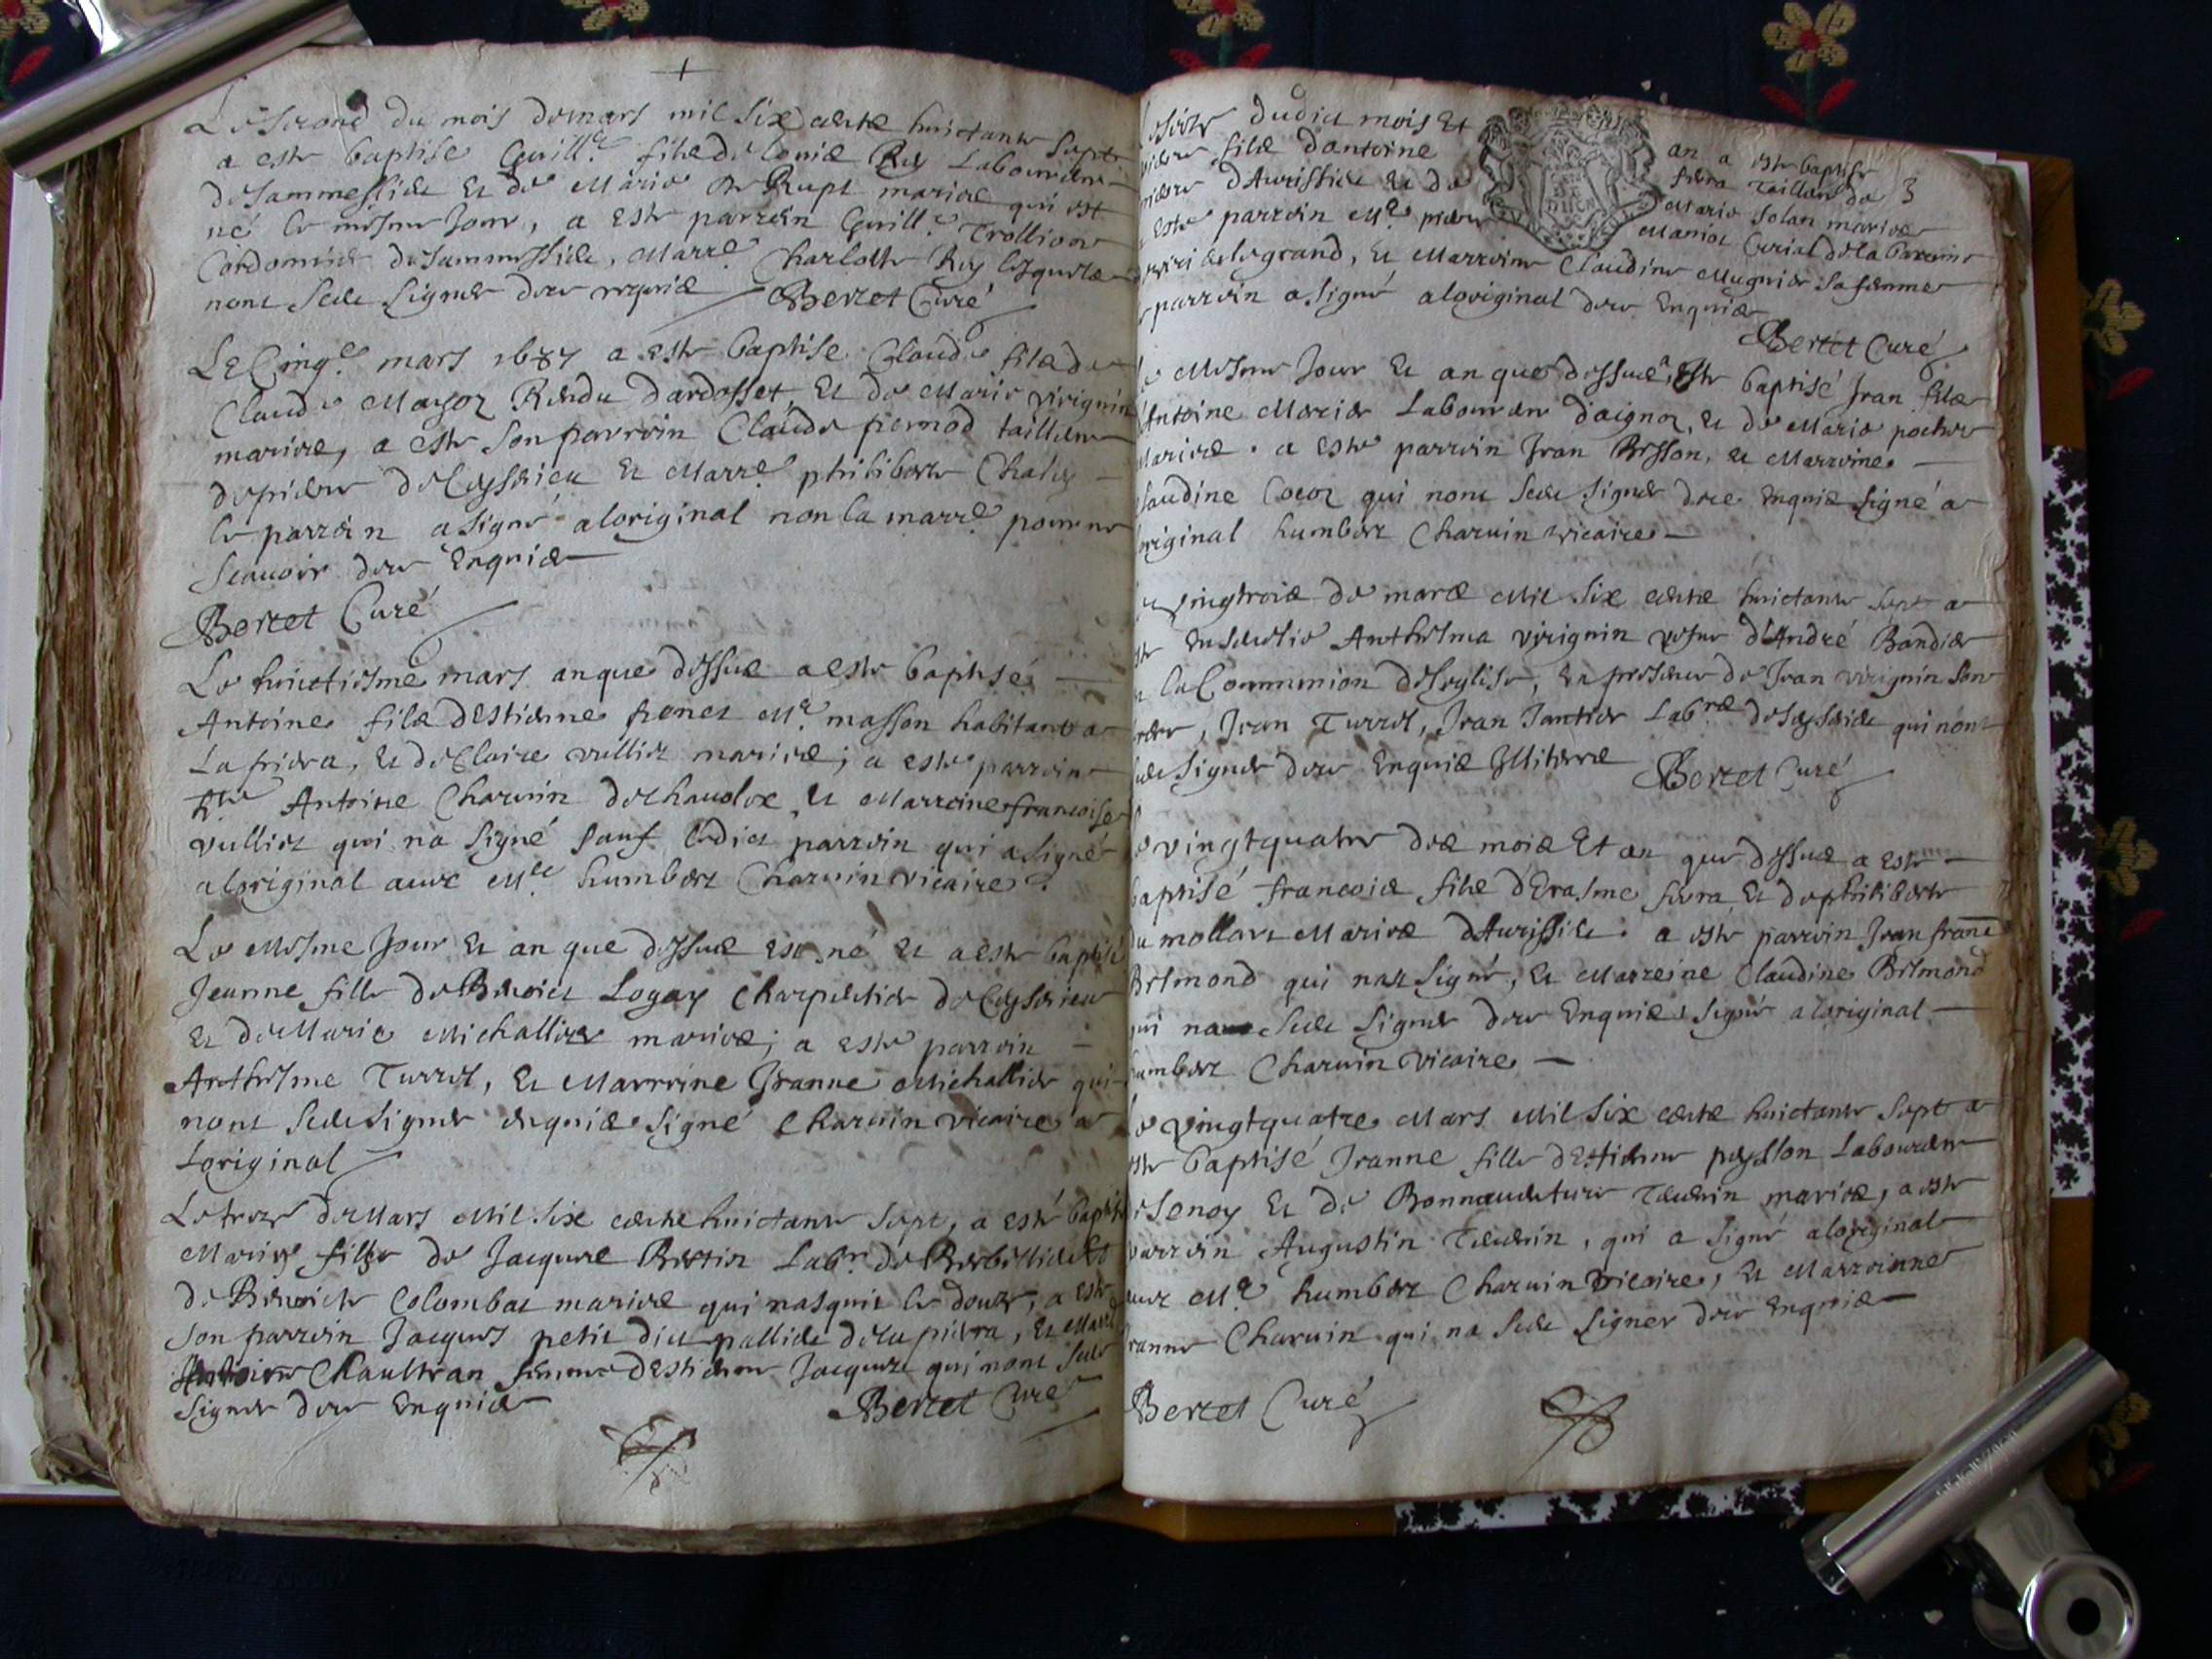 Le second du mois de mars mil six cents huictante sept
a este baptise Guill.e fils de Rey Laboureur
de Sammessieu et de Marie Rupt maries qui est
né le mesme Jour, a este parrein Guill.e Trollion
Cordonnier de Sammessieu, Marr.e Charlotte Rey lesquels
nont sceu signer de ce requis Bertet Curé
Le Cinq.e mars 1687 a este baptise Claude fils de
Claude Mayor Rendu dardosset, et de Marie virignin
maries, a este son parrein Claude piernod tailleur
de pierre de Ceyserieu et Marr.e philiberte Chaley
le parrein a signé a loriginal non la marr.e pour ne
scauoir de ce Enquis
Bertet Curé
Le huictiesme mars an que dessus a este baptisé
Antoine fils dEstienne M.e masson habitant a
La friera, et de Claire vulliet maries; a este parrein
Antoine Charuin et Marreine francoise
vulliet qui na signé sauf ledict parrein qui a signé
a loriginal auec M.e humbert Charuin vicaire
Le Mesme Jour et an que dessus est né et a este baptisé
Jeanne fille de Benoict Logay Charpentier de Ceyserieu
et de Marie Michallier maries; a este parrein
Anthelme Turrel, et Marreine Jeanne Michallier qui
nont sceu signer enquis signé Charuin vicaire a
Loriginal
Le treze de Mars Mil six cents huictante sept, a esté baptisé
Marie fille de Jacques Bertin Lab.r de Et
de Benoicte Colombat maries qui nasquit le douze, a este
son parrein Jacques petit dict pallide de la pierra, et Marr.e
Chaultran femme dEstienne Jacques qui nont sceu
signer de ce Enquis Bertet Curé
dudict mois et an a este baptise
fils dantoine fiera Tailleur de
pierre dAurissieu et de Marie Solan maries
a este parrein M.e pierre Maniot Curial de la Baronnie
le grand, et Marreine Claudine Mugnier sa femme
le parrein a signé a loriginal de ce Enquis
Bertet Curé
Le Mesme Jour et an que dessus a este baptisé Jean fils
dAntoine Mercier Laboureur daignoz, et de Marie
Maries. a este parrein Jean Besson, et Marreine
Claudine Cocoz qui nont sceu signer de ce Enquis signé a
loriginal humbert Charuin vicaire
Le vingtrois de mars Mil six cents huictante sept a
este Enseuelie Anthelma virignin vefue dAndré Bandier
en la Communion de leglise, En presence de Jean virignin son
frere, Jean Turrel, Jean Jantier Lab.rs de Ceyserieu qui nont
sceu signer de ce Enquis Illiterés Bertet Curé
Le vingtquatre des mois Et an que dessus a este
baptisé francois fils dErasme fiera et de philiberte
du mollard Maries dAurissieu. a este parrein Jean franc.
Belmond qui na signé, et Marreine Claudine Belmond
qui na sceu signer de ce Enquis signé a loriginal
humbert Charuin vicaire
Le vingtquatre Mars Mil six cents huictante sept a
este baptisé Jeanne fille dEstienne peysson Laboureur
de Senoy et de Bonnauenture Teuerin maries, a este
parrein Augustin Teuerin, qui a signé a loriginal
auec M.e humbert Charuin vicaire, et Marreinne
Jeanne Charuin qui na sceu signer de ce Enquis
Bertet Curé